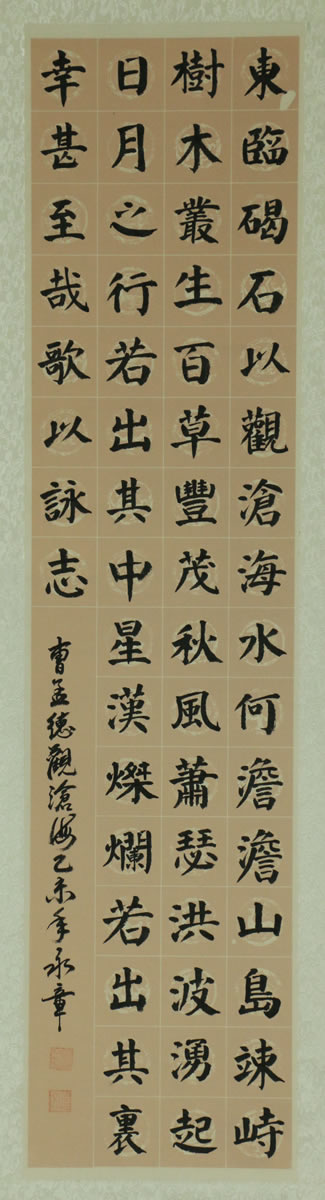 東臨碣石以觀滄海水何澹澹山島竦峙
樹木叢生百草豐茂秋風蕭瑟洪波湧起
日月之行若出其中星漢燦爛若出其裏
幸甚至哉歌以詠志
曹孟德觀滄海乙未年永章